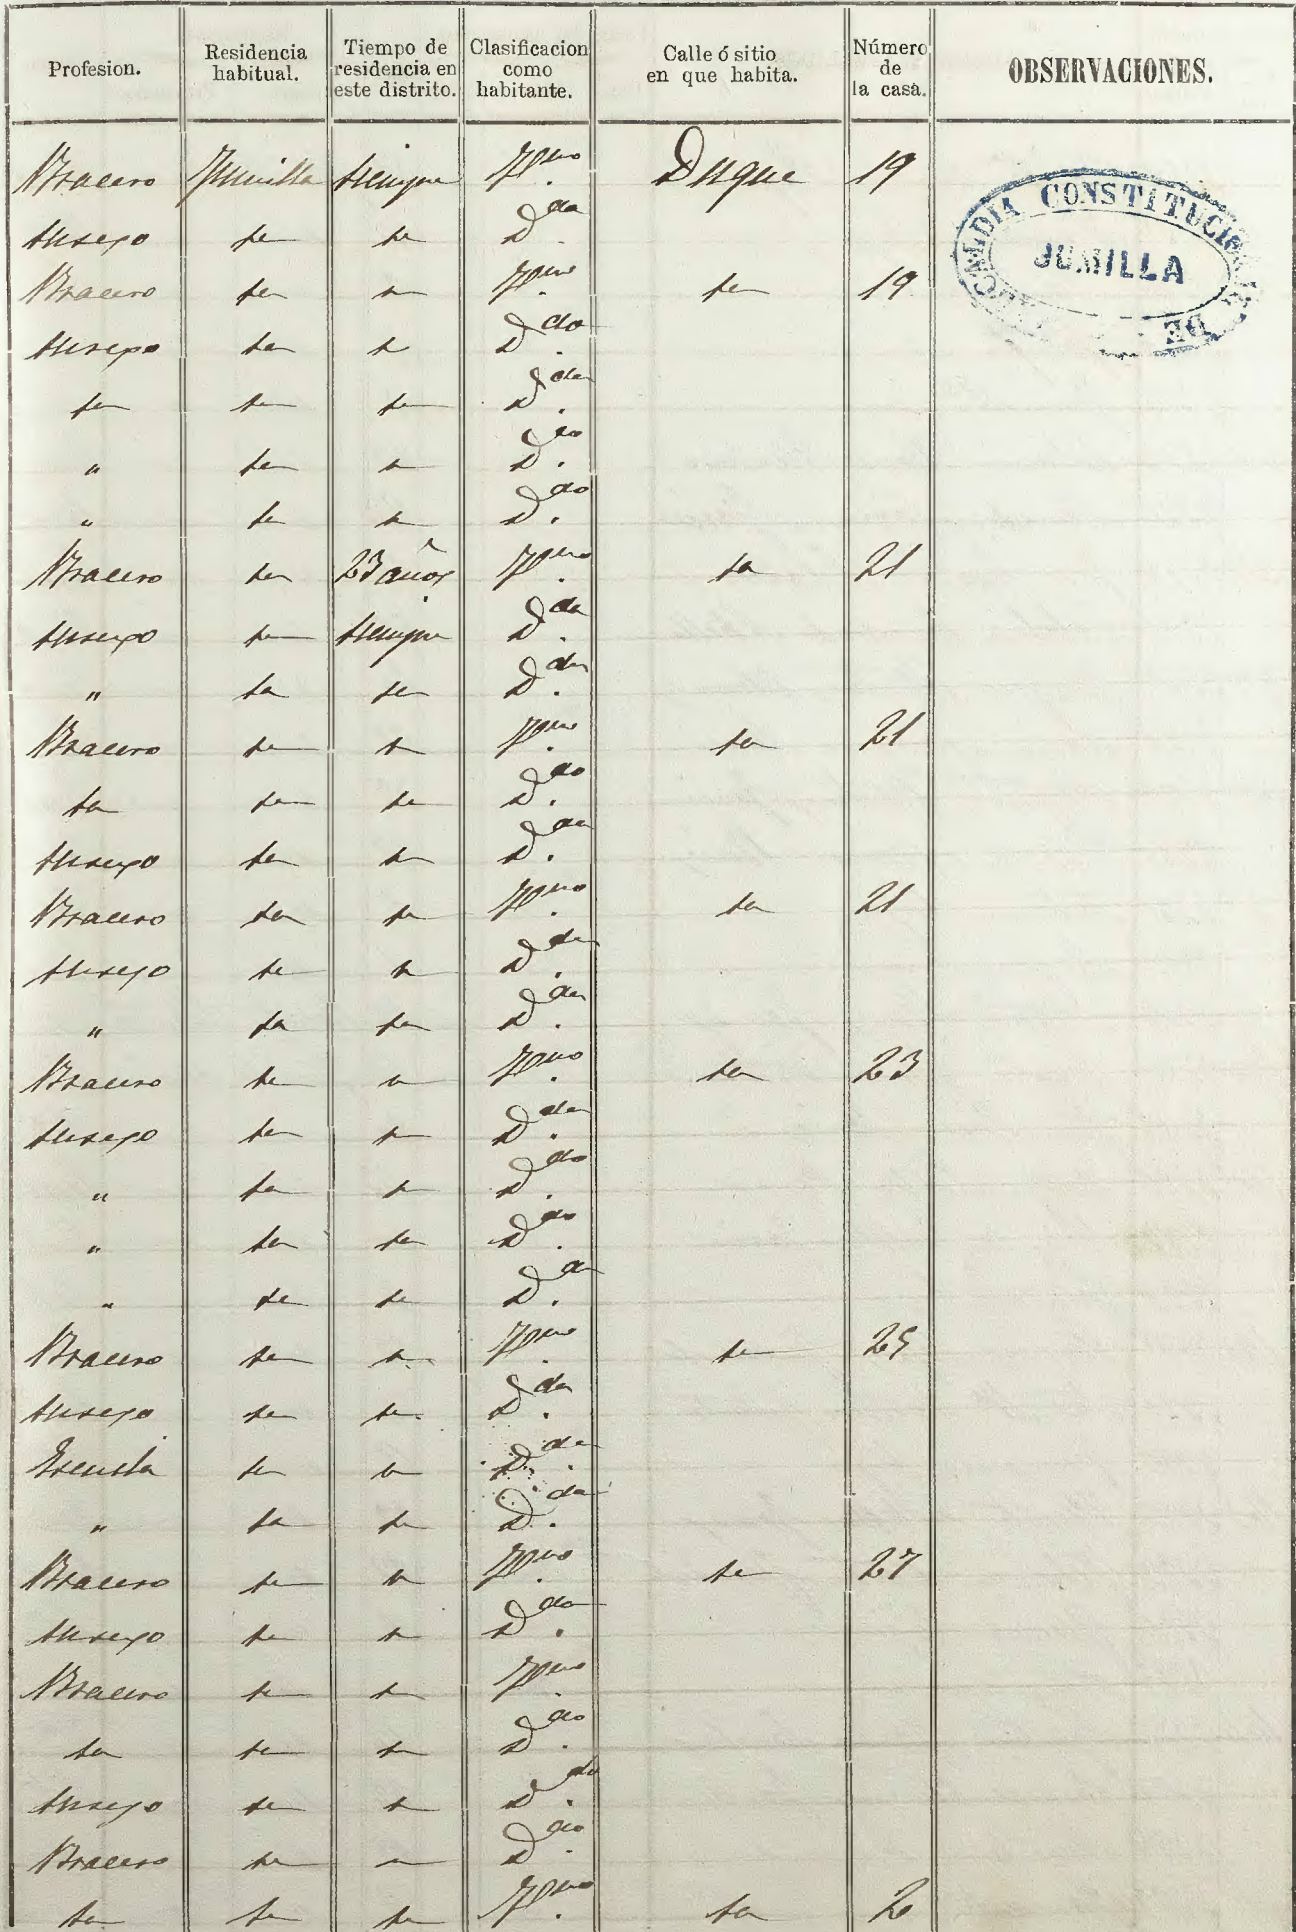 Profesion. Residencia habitual. Tiempo de residencia en este distrito. Clasificacion como habitante. Calle ó sitio en que habita. Número de la casa. OBSERVACIONES.
Bracero Jumilla siempre Vno. Duque 19
su sexo id id Dda.
Bracero id id Vno. id 19
su sexo id id Ddo.
id id id Dda.
" id id Ddo.
" id id Ddo.
Bracero id 23 años Vno. id 21
su sexo id siempre Dda.
" id id Dda.
Bracero id id Vno. id 21
id id id Ddo.
su sexo id id Dda.
Bracero id id Vno. id 21
su sexo id id Dda.
" id id Dda.
Bracero id id Vno. id 23
su sexo id id Dda.
" id id Ddo.
" id id Ddo.
" id id Dda.
Bracero id id Vno. id 25
su sexo id id Dda.
Escuela id id Dda.
" id id Dda.
Bracero id id Vno. id 27
su sexo id id Dda.
Bracero id id Vno.
id id id Ddo.
su sexo id id Ddo.
Bracero id id Ddo.
id id id Vno. id 2
ALCALDIA CONSTITUCIONAL DE
JUMILLA